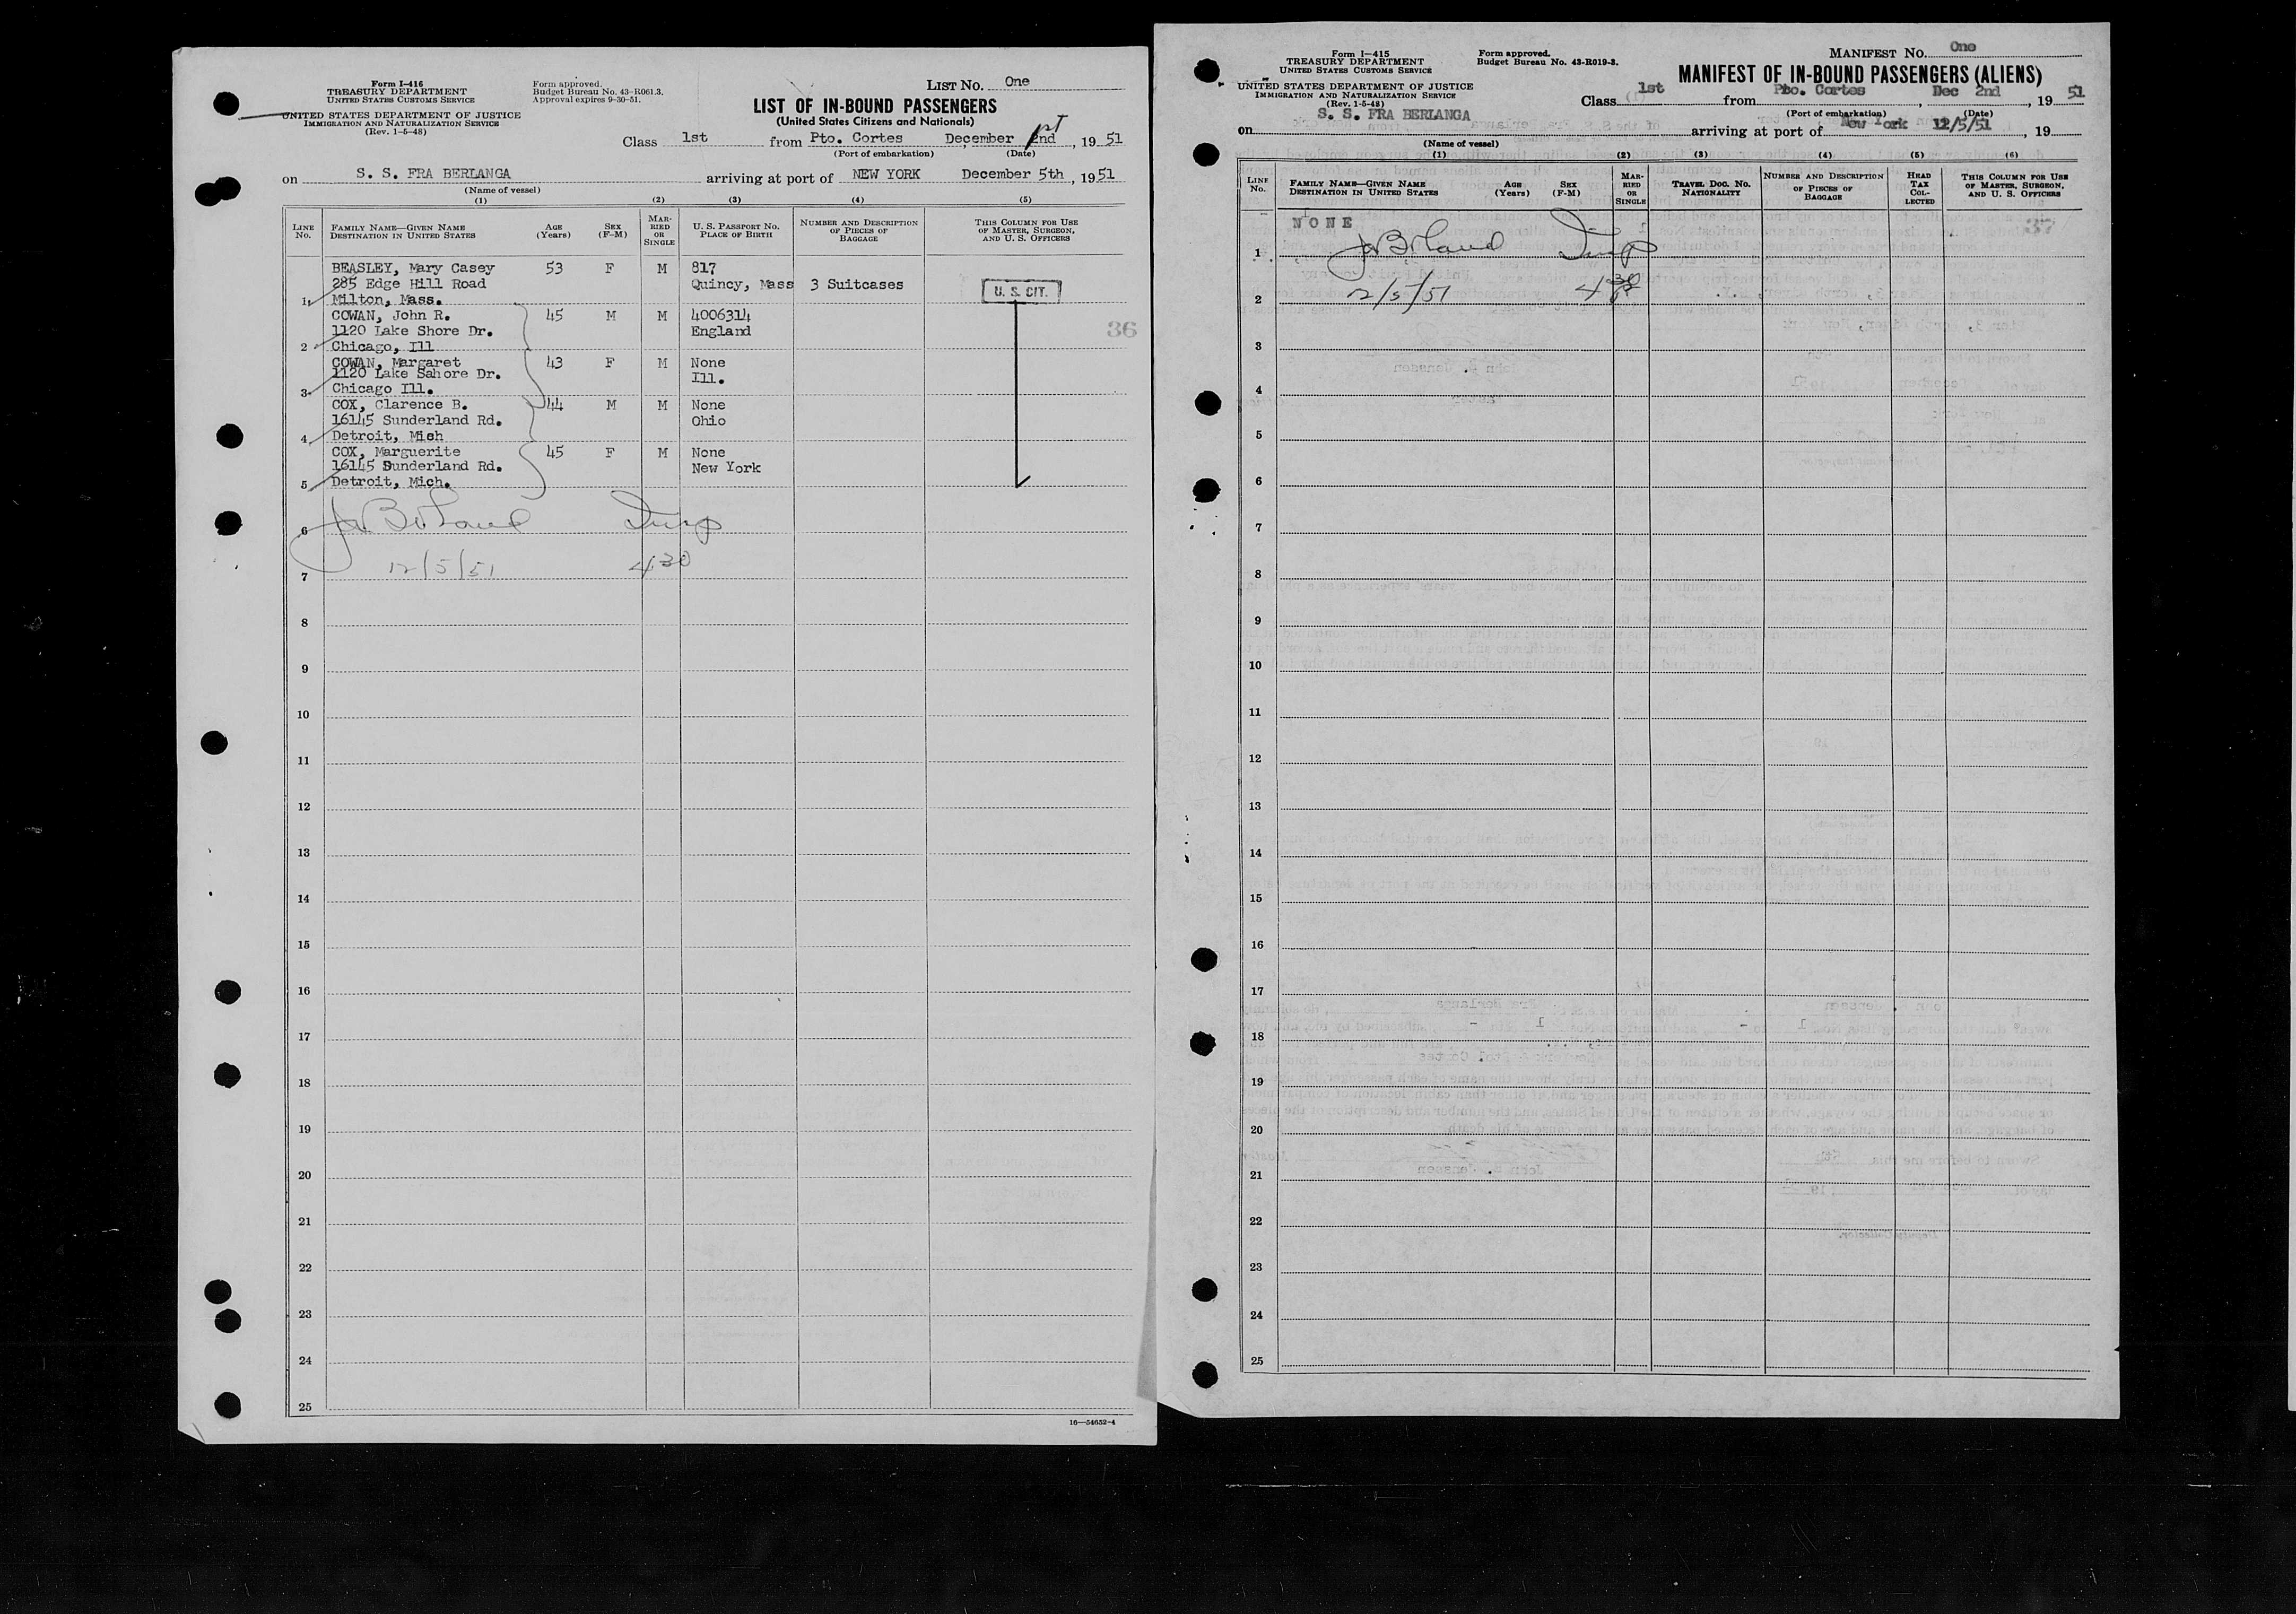 Form I-416
TREASURY DEPARTMENT
UNITED STATES CUSTOMS SERVICE
UNITED STATES DEPARTMENT OF JUSTICE
IMMIGRATION AND NATURALIZATION SERVICE
(Rev. 1-5-48)
Form approved.
Budget Bureau No. 43-R061.3.
Approval expires 9-30-51.
LIST NO. One
LIST OF IN-BOUND PASSENGERS
(United States Citizens and Nationals)
Class 1st from Pto. Cortes December 2nd 1st, 1951
(Port of embarkation) (Date)
on S. S. FRA BERLANGA arriving at port of NEW YORK December 5th, 1951
(Name of vessel)
(1) (2) (3) (4) (5)
LINE NO. FAMILY NAME—GIVEN NAME DESTINATION IN UNITED STATES AGE (Years) SEX (F-M) MARRIED OR SINGLE U. S. PASSPORT NO. PLACE OF BIRTH NUMBER AND DESCRIPTION OF PIECES OF BAGGAGE THIS COLUMN FOR USE OF MASTER, SURGEON, AND U. S. OFFICERS
BEASLEY, Mary Casey 53 F M 817
285 Edge Hill Road Quincy, Mass 3 Suitcases U. S. CIT.
1 Milton, Mass.
COWAN, John R. 45 M M 4006314
1120 Lake Shore Dr. England 36
2 Chicago, Ill
COWAN, Margaret 43 F M None
1120 Lake Sahore Dr. Ill.
3 Chicago Ill.
COX, Clarence B. 44 M M None
16145 Sunderland Rd. Ohio
4 Detroit, Mich
COX, Marguerite 45 F M None
16145 Sunderland Rd. New York
5 Detroit, Mich.
6
7 12/5/51 430
8
9
10
11
12
13
14
15
16
17
18
19
20
21
22
23
24
25
16—54652-4
Form I-415
TREASURY DEPARTMENT
UNITED STATES CUSTOMS SERVICE
UNITED STATES DEPARTMENT OF JUSTICE
IMMIGRATION AND NATURALIZATION SERVICE
(Rev. 1-5-48)
Form approved.
Budget Bureau No. 43-R019-3.
MANIFEST NO. One
MANIFEST OF IN-BOUND PASSENGERS (ALIENS)
Class 1st from Pto. Cortes, Dec 2nd, 1951
(Port of embarkation) (Date)
on S. S. FRA BERLANGA arriving at port of New York 12/5/51, 19
(Name of vessel)
(1) (2) (3) (4) (5) (6)
LINE NO. FAMILY NAME—GIVEN NAME DESTINATION IN UNITED STATES AGE (Years) SEX (F-M) MARRIED OR SINGLE TRAVEL DOC. NO. NATIONALITY NUMBER AND DESCRIPTION OF PIECES OF BAGGAGE HEAD TAX COLLECTED THIS COLUMN FOR USE OF MASTER, SURGEON, AND U. S. OFFICERS
NONE 37
1
2 12/5/51 430
3
4
5
6
7
8
9
10
11
12
13
14
15
16
17
18
19
20
21
22
23
24
25